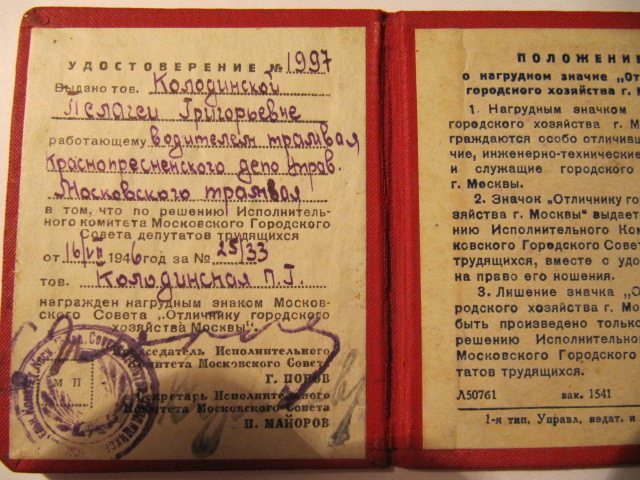 УДОСТОВЕРЕНИЕ № 1997
Выдано тов. Колодинской
Пелагеи Григорьевне
работающему водителем трамвая
Краснопресненского депо Управ.
Московского трамвая
в том, что по решению Исполнитель-
ного комитета Московского Городского
Совета депутатов трудящихся
от 16/VII 1946 года за № 25/33
тов. Колодинская П.Г.
награжден нагрудным знаком Москов-
ского Совета „Отличнику городского
хозяйства Москвы“.
Председатель Исполнительного
Комитета Московского Совета
Г. ПОПОВ
Секретарь Исполнительного
Комитета Московского Совета
П. МАЙОРОВ
М П
ПОЛОЖЕНИЕ
о нагрудном значке „От
городского хозяйства г. М
1. Нагрудным значком
городского хозяйства г. М
граждаются особо отличивш
чие, инженерно-технические
и служащие городского
г. Москвы.
2. Значок „Отличнику го
зяйства г. Москвы“ выдает
нию Исполнительного Ком
ковского Городского Совет
трудящихся, вместе с удо
на право его ношения.
3. Лишение значка „О
родского хозяйства г. Мос
быть произведено только
решению Исполнительн
Московского Городского
татов трудящихся.
Л50761 зак. 1541
1-я тип. Управл. издат. и